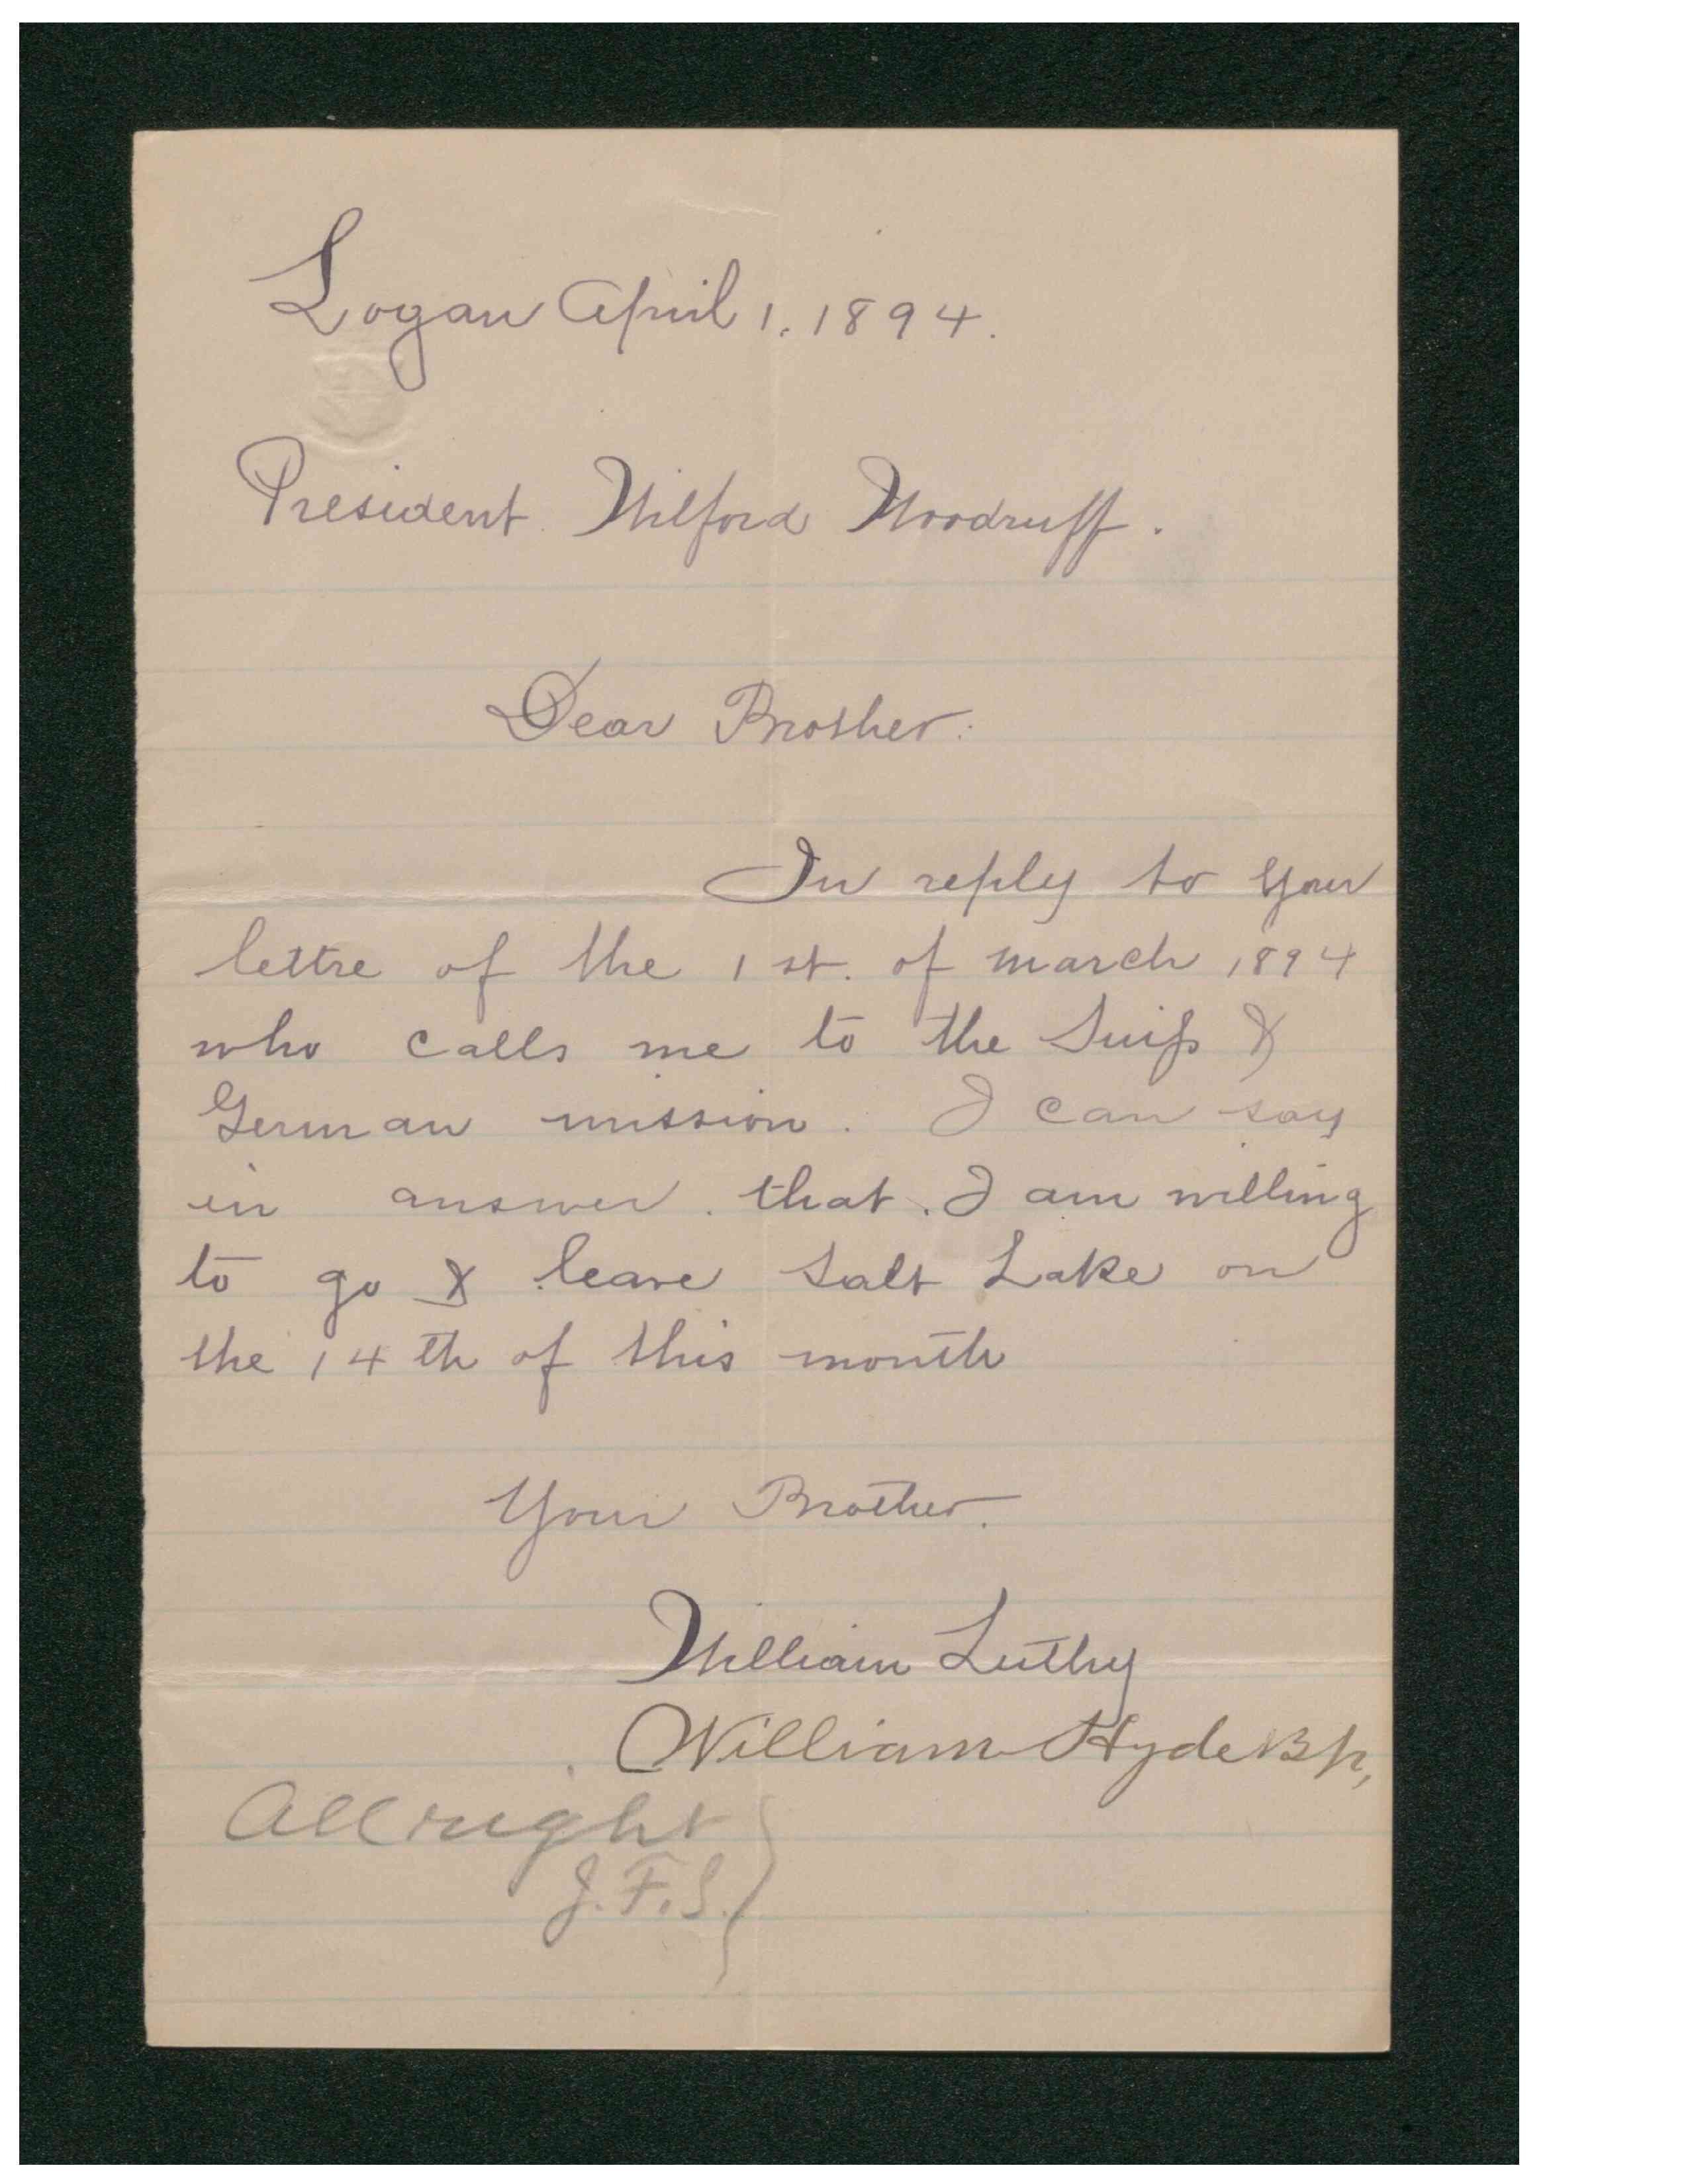 Logan April 1. 1894.
President Wilford Woodruff.
Dear Brother:
In reply to your
lettre of the 1 st. of march 1894
who calls me to the Suiss &
German mission. I can say
in answer. that. I am willing
to go & leave Salt Lake on
the 14 th of this month
Your Brother.
William Luthy
William Hyde Bp,
All right
J.F.S.